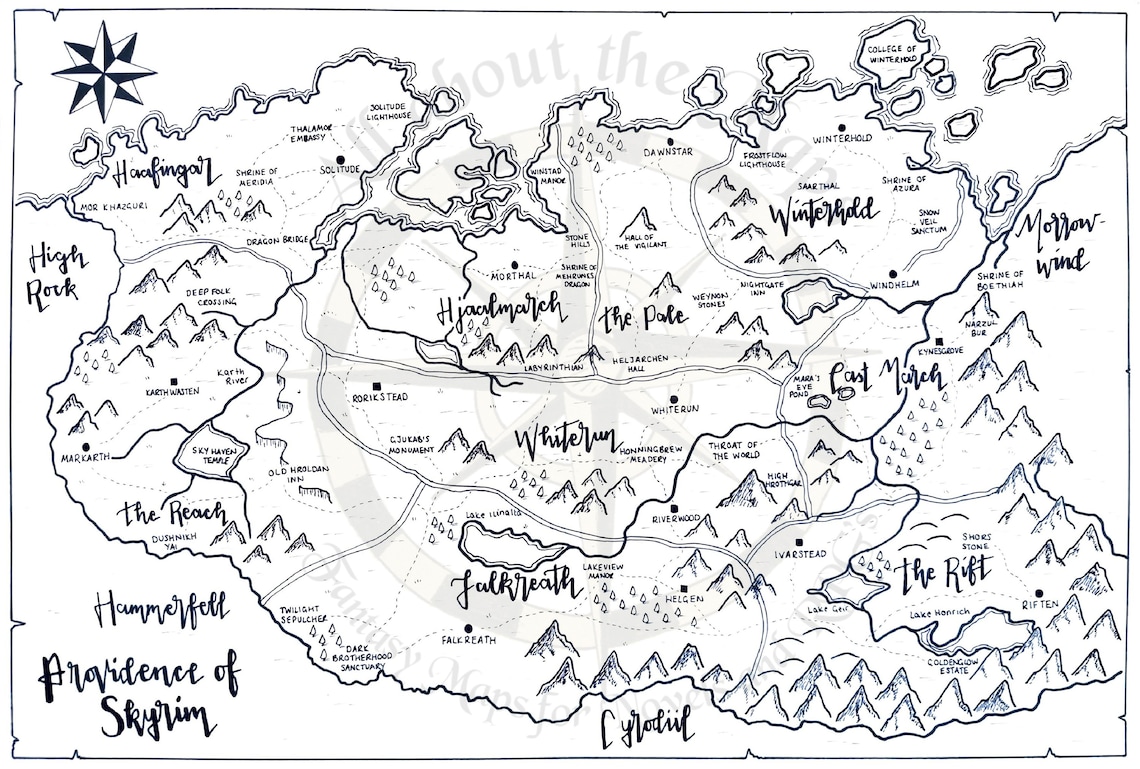 COLLEGE OF
WINTERHOLD
SOLITUDE
LIGHTHOUSE
THALAMOR
EMBASSY
SOLITUDE
Haafingar
SHRINE OF
MERIDIA
MOR KHAZGURI
DRAGON BRIDGE
WINSTAD
MANOR
DAWNSTAR
FROSTFLOW
LIGHTHOUSE
WINTERHOLD
SAARTHAL
SHRINE OF
AZURA
Winterhold
SNOW
VEIL
SANCTUM
Morrow-
wind
High
Rock
STONE
HILLS
HALL OF
THE VIGILANT
MORTHAL
SHRINE OF
MEHRUNES
DRAGON
Hjaalmarch
the Pale
WEYNON
STONES
NIGHTGATE
INN
WINDHELM
SHRINE OF
BOETHIAH
NARZUL
BUR
KYNESGROVE
DEEP FOLK
CROSSING
Karth
River
KARTHWASTEN
LABYRINTHIAN
HELJARCHEN
HALL
MARA'S
EYE
POND
East March
RORIKSTEAD
WHITERUN
Whiterun
GJUKAB'S
MONUMENT
HONNINGBREW
MEADERY
THROAT OF
THE WORLD
HIGH
HROTHGAR
MARKARTH
SKY HAVEN
TEMPLE
OLD HROLDAN
INN
the Reach
DUSHNIKH
YAL
Lake Ilinalta
RIVERWOOD
IVARSTEAD
SHORS
STONE
the Rift
Falkreath
LAKEVIEW
MANOR
HELGEN
Lake Geir
Lake Honrich
RIFTEN
GOLDENGLOW
ESTATE
Hammerfell
TWILIGHT
SEPULCHER
DARK
BROTHERHOOD
SANCTUARY
FALKREATH
Providence of
Skyrim
Cyrodiil
about the
Fantasy Maps for Novels and